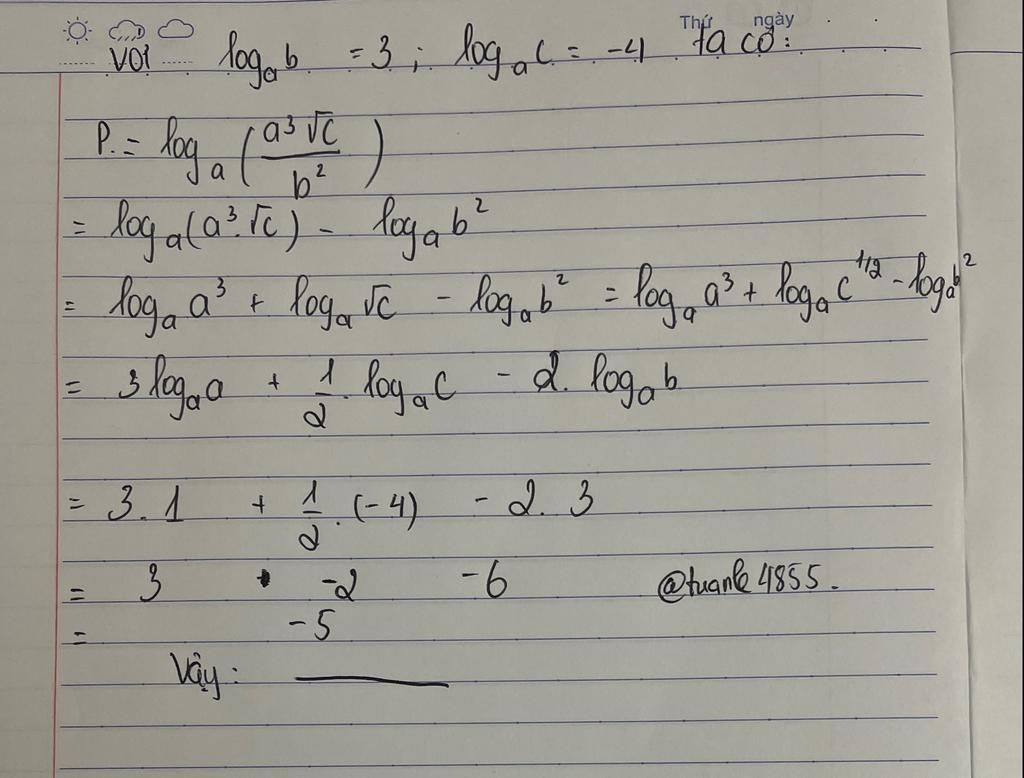 Thứ ngày
Với log_a b = 3 ; log_a c = -4 ta có:
P. = log_a (a³√c / b²)
= log_a (a³.√c) - log_a b²
= log_a a³ + log_a √c - log_a b² = log_a a³ + log_a c^1/2 - log_a b²
= 3 log_a a + 1/2 . log_a c - 2. log_a b
= 3.1 + 1/2 . (-4) - 2. 3
= 3 • -2 -6 @tuanle4855.
= -5
Vậy: